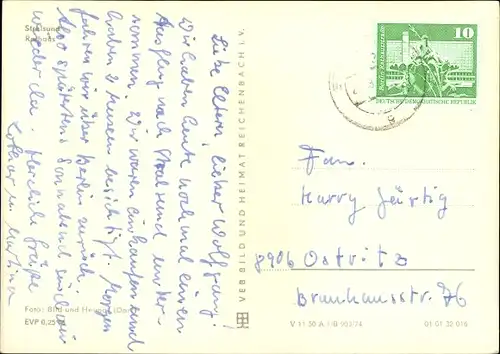 Stralsund
Rathaus
Liebe Eltern, lieber Wolfgang!
Wir haben heute nochmal einen
Ausflug nach Stralsund unter-
nommen. Wir waren einkaufen und
haben 2 Museen besichtigt. Morgen
fahren wir über Berlin zurück.
Also spätestens Sonnabend sind wir
wieder da. Herzliche Grüße
Lothar u. Martina
Foto: Bild und Heimat
EVP 0,25
VEB BILD UND HEIMAT REICHENBACH I. V.
10
DEUTSCHE DEMOKRATISCHE REPUBLIK
Fam.
Harry Gürtig
8906 Ostritz
Brauhausstr. 76
V 11 30 A 1 B 503/74
01 01 32 016